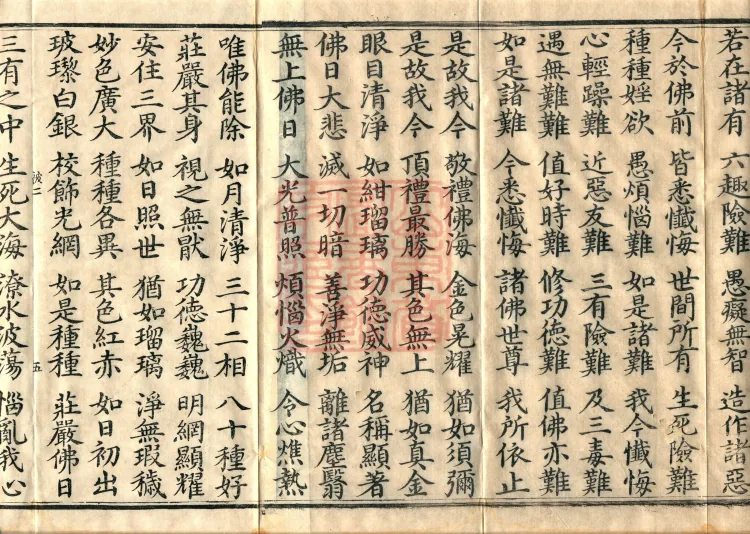 若在諸有 六趣險難 愚癡無智 造作諸惡
今於佛前 皆悉懺悔 世間所有 生死險難
種種婬欲 愚煩惱難 如是諸難 我今懺悔
心輕躁難 近惡友難 三有險難 及三毒難
遇無難難 值好時難 修功德難 值佛亦難
如是諸難 今悉懺悔 諸佛世尊 我所依止
是故我今 敬禮佛海 金色晃耀 猶如須彌
是故我今 頂禮最勝 其色無上 猶如真金
眼目清淨 如紺瑠璃 功德威神 名稱顯著
佛日大悲 滅一切暗 善淨無垢 離諸塵翳
無上佛日 大光普照 煩惱火熾 令心燋熱
唯佛能除 如月清淨 三十二相 八十種好
莊嚴其身 視之無厭 功德巍巍 明網顯耀
安住三界 如日照世 猶如瑠璃 淨無瑕穢
妙色廣大 種種各異 其色紅赤 如日初出
玻瓈白銀 校飾光網 如是種種 莊嚴佛日
五
三有之中 生死大海 潦水波蕩 惱亂我心